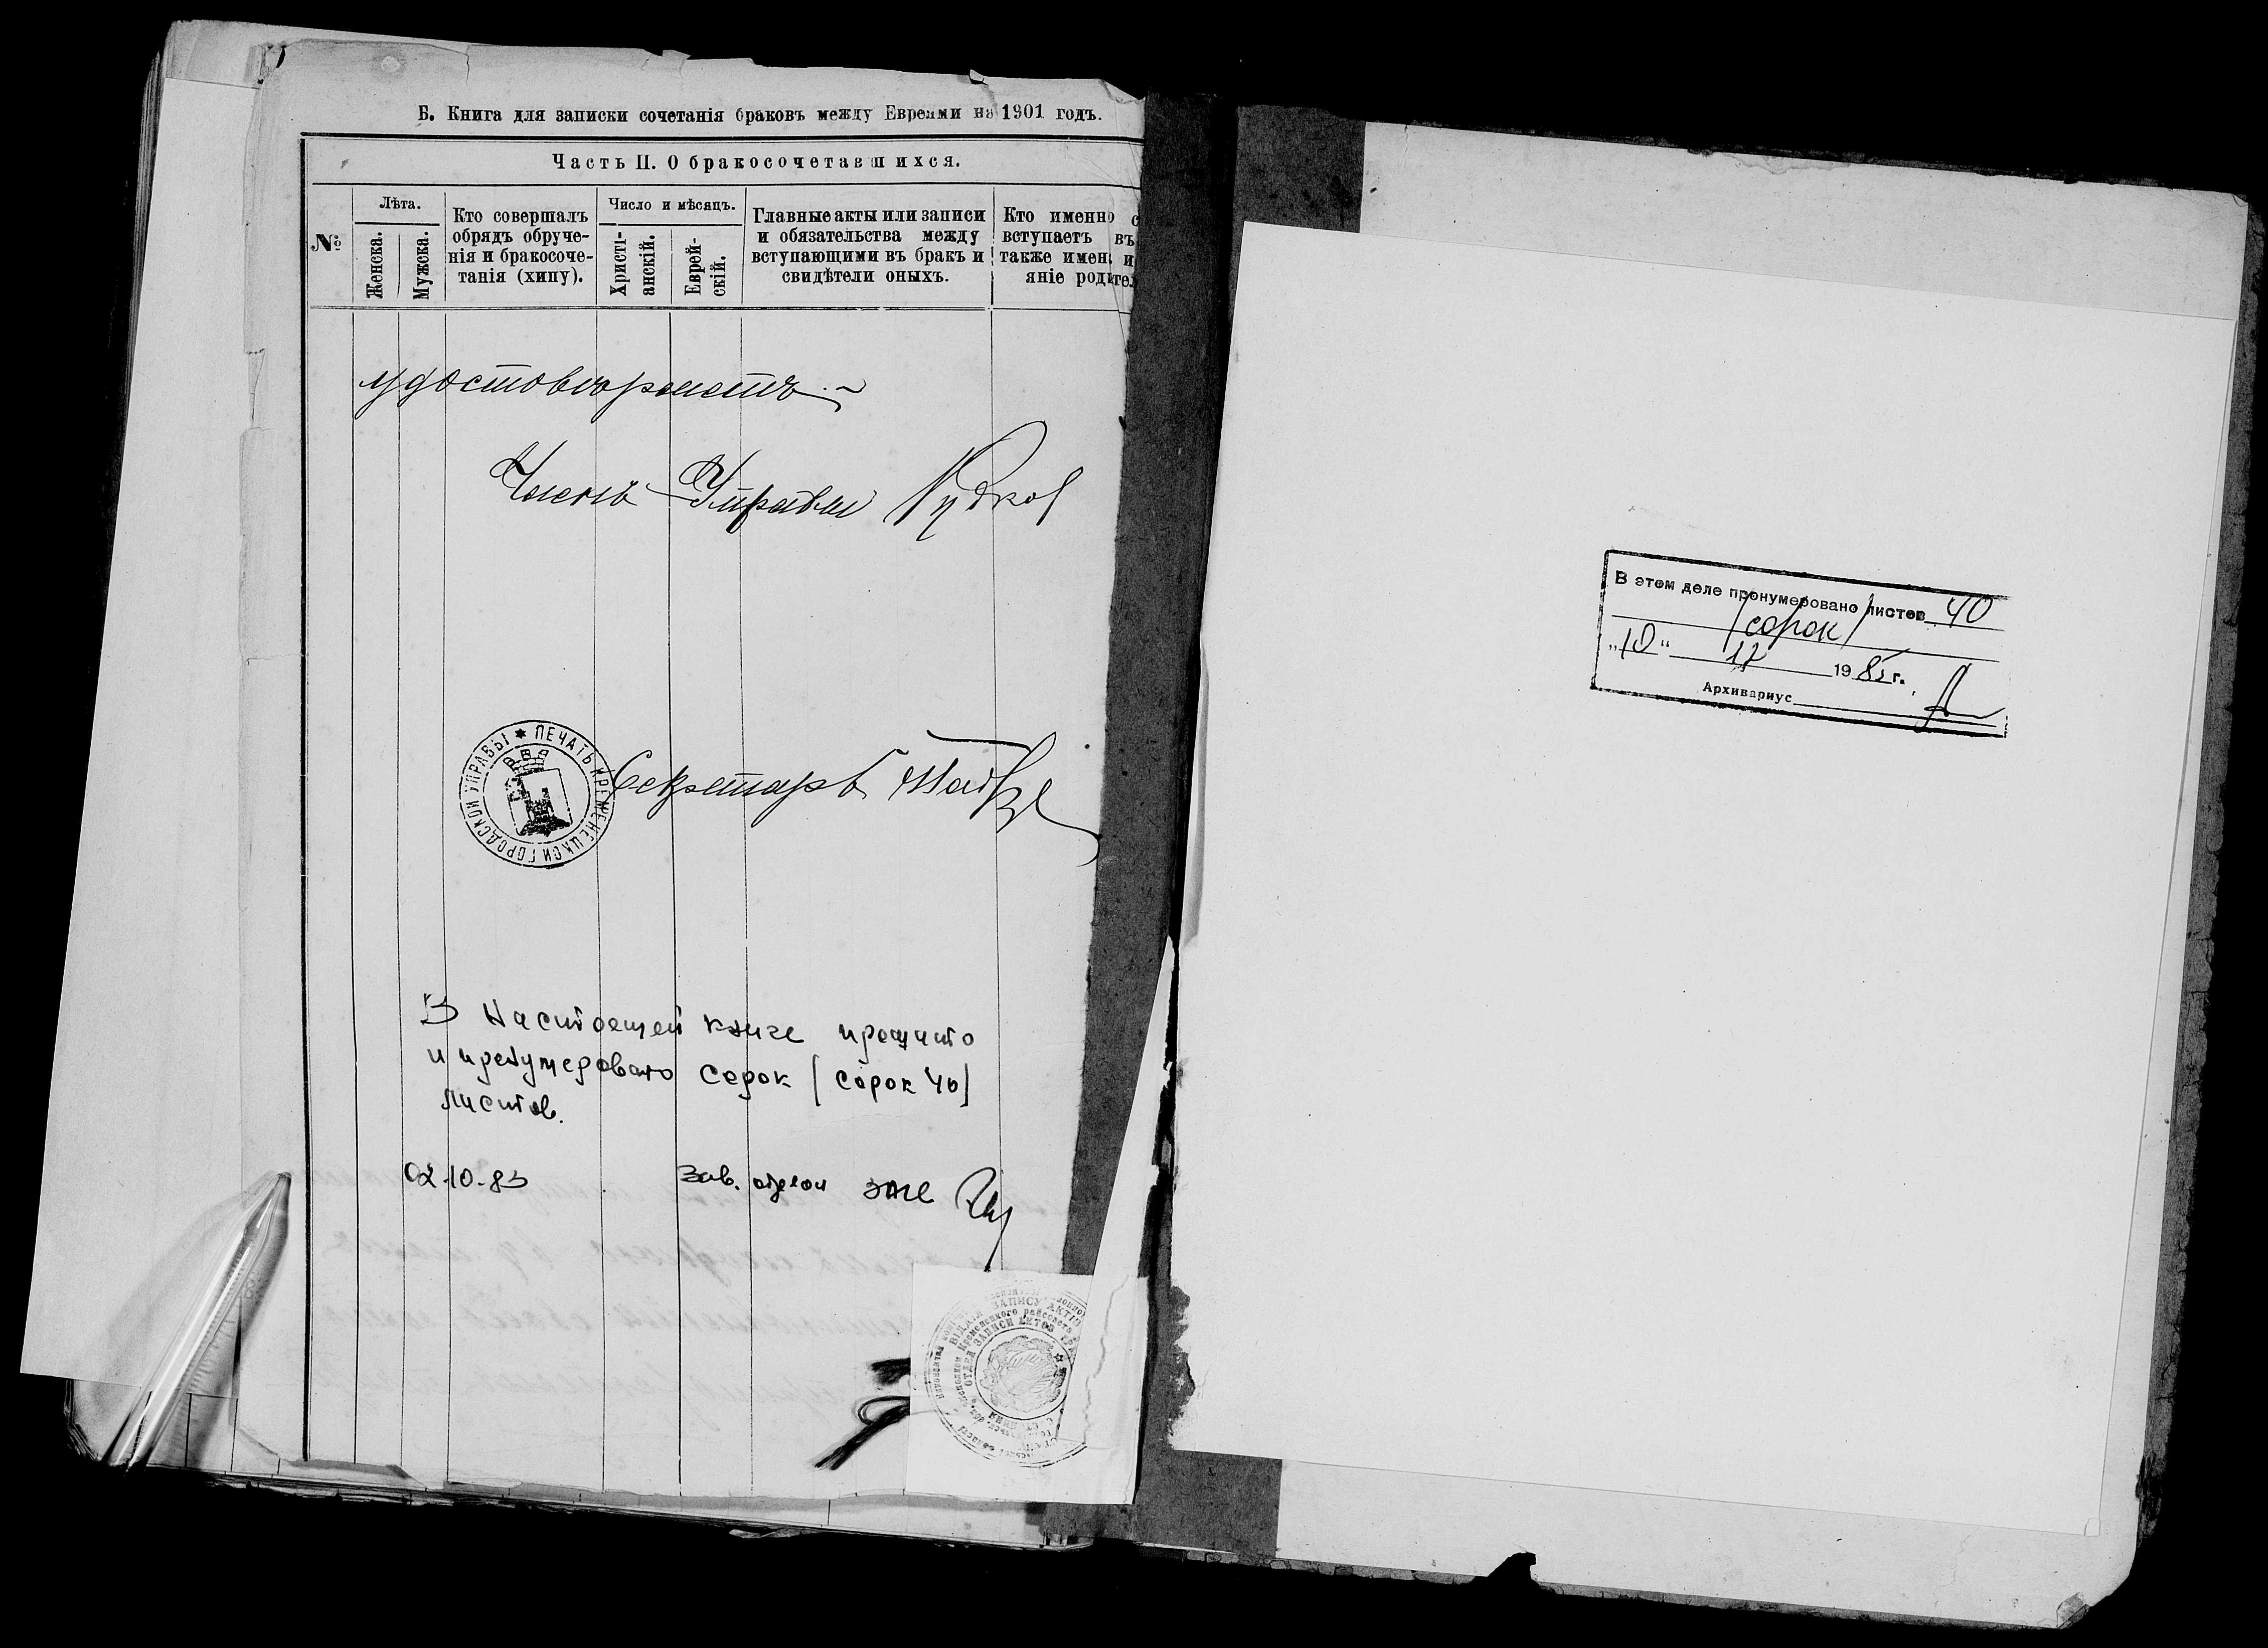 Б. Книга для записки сочетанія браковъ между Евреями на 1901 годъ.
Часть II. О бракосочетавшихся.
№
Лѣта.
Женска.
Мужска.
Кто совершалъ
обрядъ обруче-
нія и бракосоче-
танія (хипу).
Число и мѣсяцъ.
Христі-
анскій.
Еврей-
скій.
Главные акты или записи
и обязательства между
вступающими въ бракъ и
свидѣтели оныхъ.
Кто именно с
вступаетъ въ
также имена и
яніе родител
удостовѣряетъ.
Членъ Управы
ПЕЧАТЬ КРЕМЕНЕЦКОЙ ГОРОДСКОЙ УПРАВЫ
Секретарь
В настоящей книге прошито
и пронумеровано сорок [сорок 40]
листов.
02-10-83
Зав. отделом
ВІДДІЛ ЗАПИСУ АКТІВ
ОТДЕЛ ЗАПИСИ АКТОВ
В этом деле пронумеровано листов 40
/сорок/
„10“ 12 1985г.
Архивариус